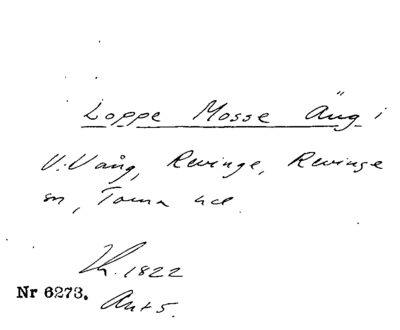 Loppe Mosse Äng i
V. Vång, Revinge, Revinge
sn, Torna hd.
Lh. 1822
Nr 6273. Ant 5.